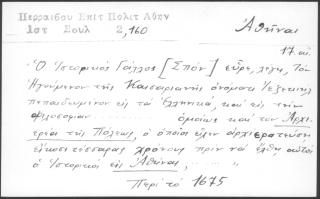 Περραιβου Επιτ Πολιτ Αθην
Ιστ Σουλ 2,160
Ἀθῆναι
17. αι.
"Ὁ Ἱστορικὸς Γάλλος [Σπὸν] εὗρε, λέγει, τὸν
Ἡγούμενον τῆς Καισαριανῆς ὀνόματι Ἰεζεκιὴλ
πεπαιδευμένον εἰς τὰ Ἑλληνικά, καὶ εἰς τὴν
φιλοσοφίαν ὁμοίως καὶ τὸν Ἀρχι-
ερέα τῆς Πόλεως, ὁ ὁποῖος εἶχεν ἀρχιερατεύσῃ
εἴκοσι τέσσαρας χρόνους πρὶν νὰ ἔλθῃ αὐτὸς
ὁ Ἱστορικὸς εἰς Ἀθήνας, ......... "
Περὶ τὸ 1675